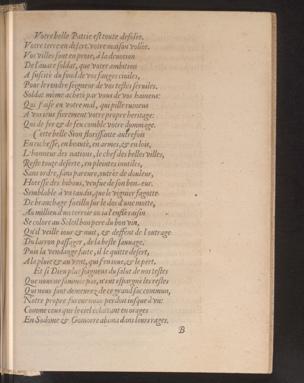 Vostre belle Patrie est toute desolée,
Vostre terre en desert, vostre maison volée.
Vos villes sont en proye, à la devotion
De l'avare soldat, que vostre ambition
A suscité du fond de vos fanges civiles,
Pour le rendre seigneur de vos testes serviles.
Soldat mesme acheté par vous de vos haineux:
Qui faisé en vostre mal, qui pille ruineux
A vos yeux fierement vostre propre heritage:
Qui de fer & de feu comble vostre dommage.
Cette belle Sion florissante autrefois
En richesse, en beauté, en armes, & en loix,
L'honneur des nations, le chef des belles villes,
Reste toute deserte, en plaintes inutiles,
Sans ordre, sans parure, outrée de douleur,
Hotesse des hiboux, veufue de son bon-heur.
Semblable à vn taudis, que le vigneron fagotte
De branchage
Au milieu d'vn terroir
Se coler au Soleil
Qu'il veille iour & nuit, & deffent de l'outrage
Du larron passager, de la beste sauuage.
Puis la vendange faite, il le quitte desert,
A la pluye & au vent, qui
Et si Dieu plus soigneux du salut de nos testes
Que nous ne sommes pas, n'eust espargné les restes
Qui nous sont demeurez de ce grand sac commun,
Nostre propre fureur nous perdoit iusque d'vn:
Comme ceux que le ciel éclattant en orages
En Sodome & Gomorre abima dans leurs rages.
B